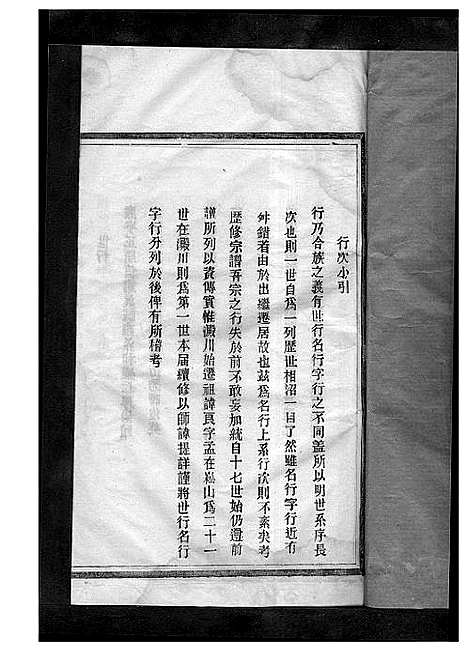 行次小引
行乃合族之義有世行名行字行之不同蓋所以明世系序長
次也則一世自爲一列歷世相沿一目了然雖名行字行近有
舛錯者由於出繼遷居故也兹爲名行上系行次則不紊矣考
歷修宗譜吾宗之行失於前不敢妄加統自十七世始仍遵前
譜所列以資傳實惟澱川始遷祖諱良字孟在嵩山爲二十一
世在澱川則爲第一世本屆續修以師諱提詳謹將世行名行
字行分列於後俾有所稽考